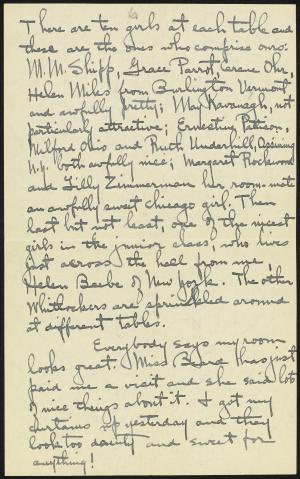 There are ten girls at each table and
these are the ones who comprise ours:
M. M. Shipp, Grace Parrot, Irene Ohr,
Helen Miles from Burlington Vermont
and awfully pretty; May Kavanagh, not
particularly attractive; Ernestine Pattison,
Milford Ohio and Ruth Underhill, Ossining
N.Y. both awfully nice; Margaret Rockwood
and Lilly Zimmerman her room-mate
an awfully sweet Chicago girl. Then
last but not least, one of the nicest
girls in the junior class, who lives
just across the hall from me,
Helen Beebe of New York. The other
Whitlockers are sprinkled around
at different tables.
Everybody says my room
looks great. Miss Beard has just
paid me a visit and she said lots
of nice things about it. I got my
curtains up yesterday and they
look too dainty and sweet for
anything!